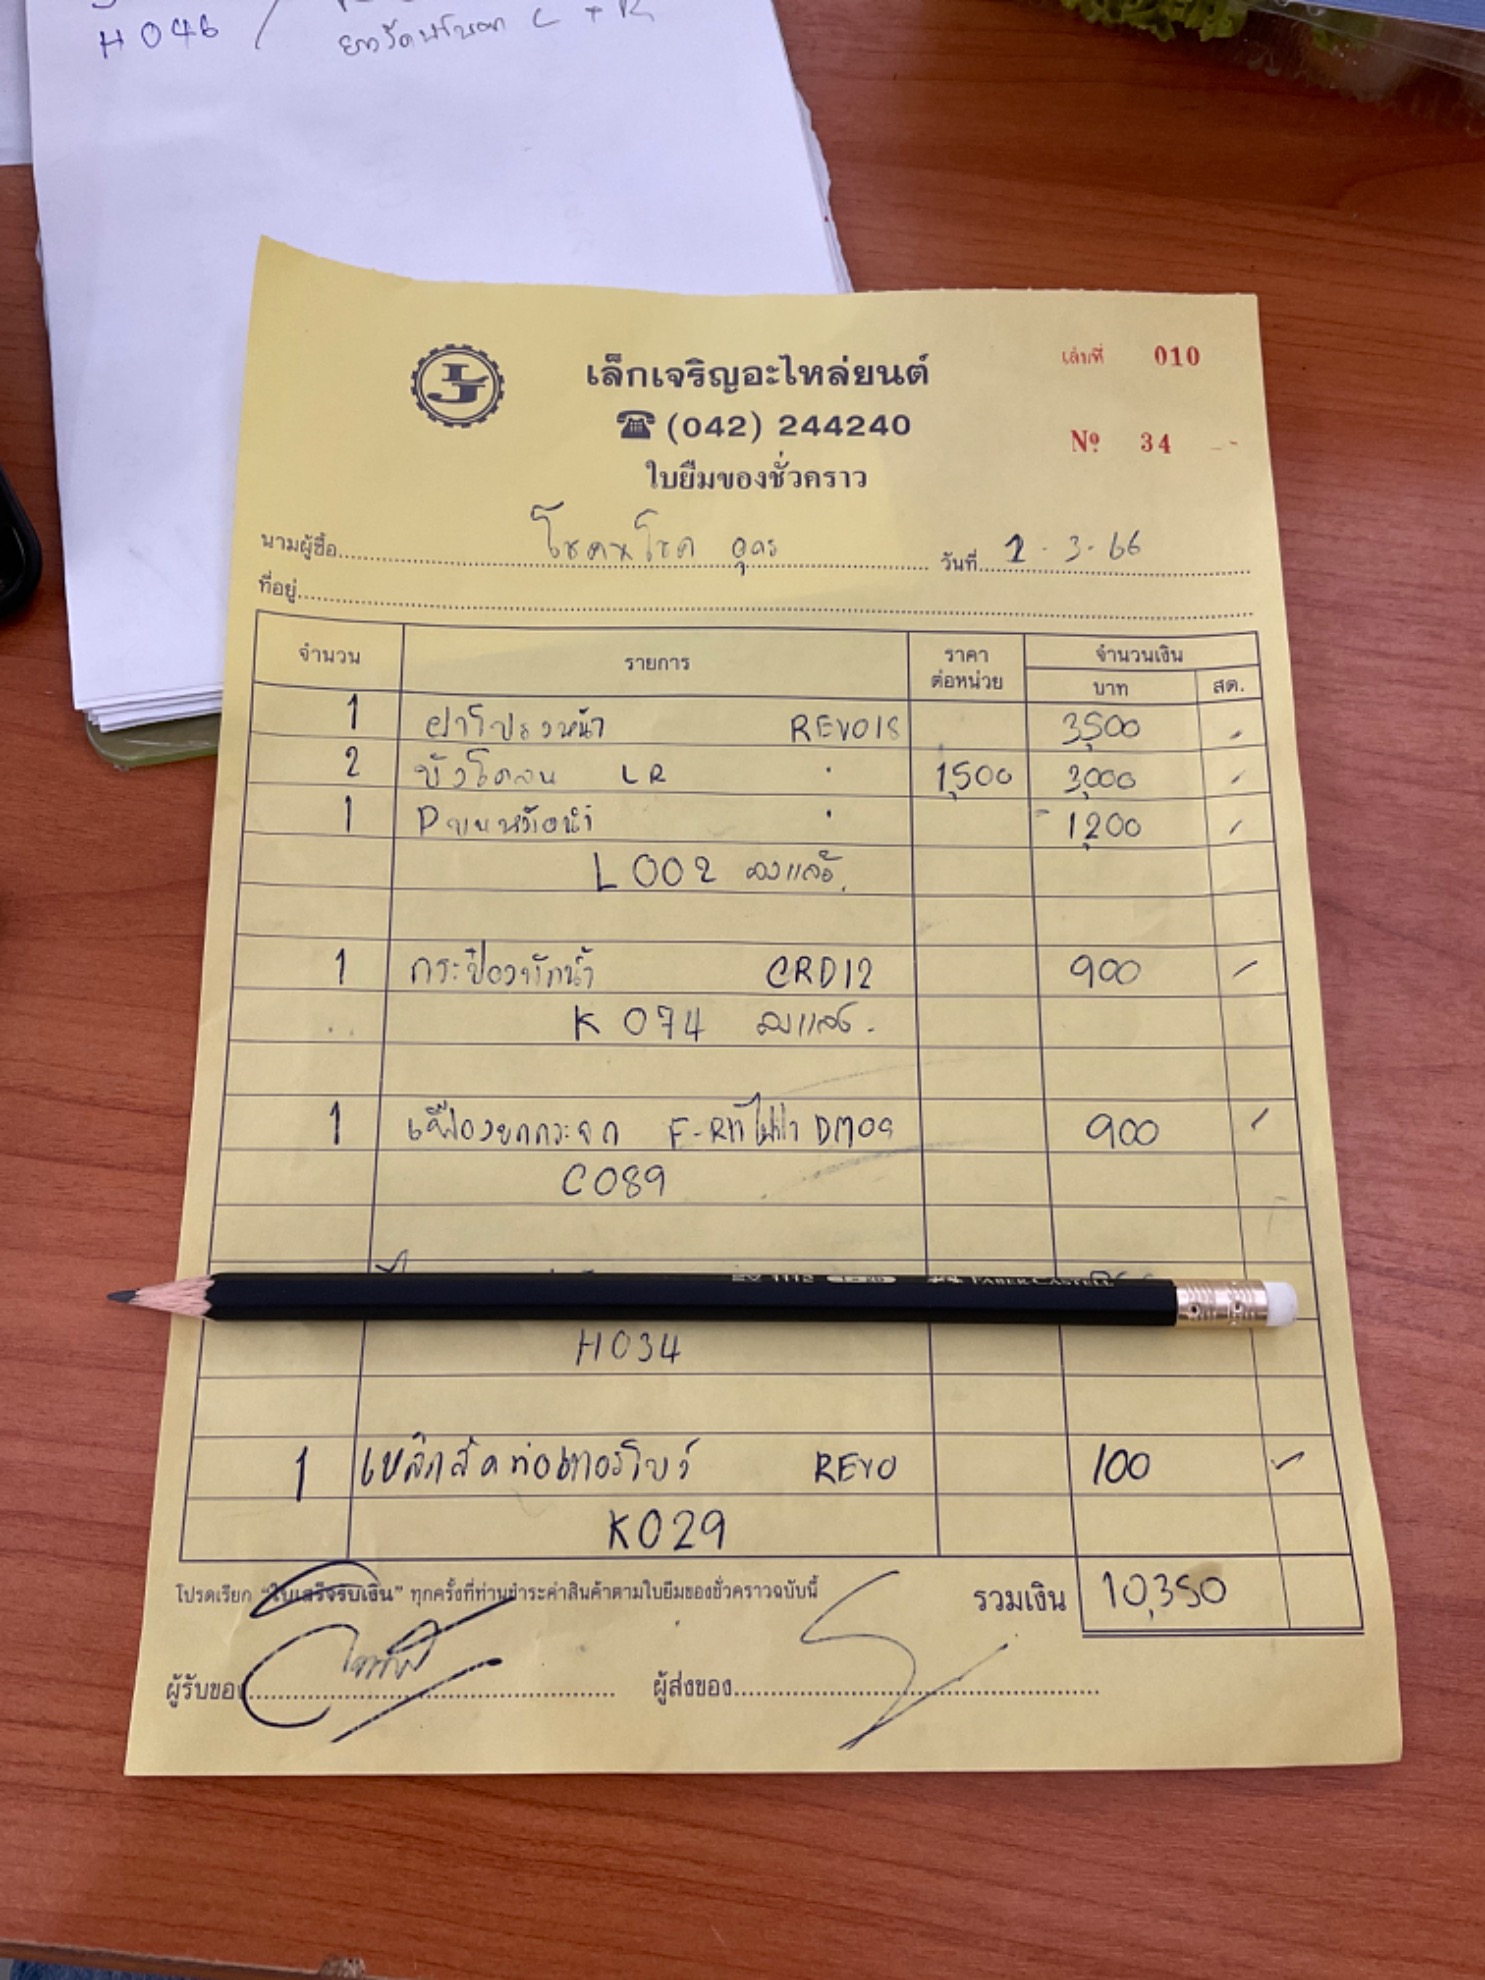 H 046 /
เล็กเจริญอะไหล่ยนต์
เล่มที่ 010
(042) 244240
Nº 34
ใบยืมของชั่วคราว
นามผู้ซื้อ โชคชโชค อุดร วันที่ 2-3-66
ที่อยู่
จำนวน รายการ ราคาต่อหน่วย จำนวนเงิน
บาท สต.
1 ฝาโปรงหน้า REVO15 3,500
2 บังโคลน LR " 1,500 3,000
1 Pแผงหม้อน้ำ " 1,200
L002 ลงแล้ว
1 กระป๋องพักน้ำ CRD12 900
K074 ลงแล้ว
1 เฟืองยกกระจก F-Rท้ไฟฟ้า DM09 900
C089
EV 1112 FABER-CASTELL
H034
1 เหล็กรัดท่อเทอร์โบว์ REVO 100
K029
โปรดเรียก "ใบเสร็จรับเงิน" ทุกครั้งที่ท่านชำระค่าสินค้าตามใบยืมของชั่วคราวฉบับนี้ รวมเงิน 10,350
ผู้รับของ ผู้ส่งของ